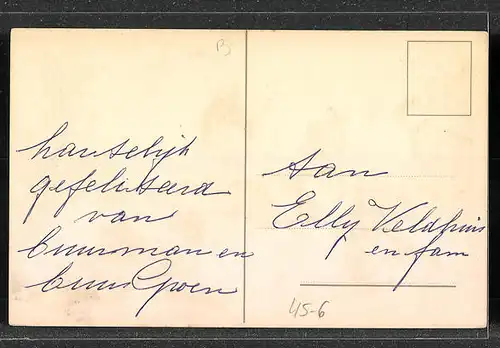 B
hartelijk
gefeliciteerd
van
buurman en
buuv Goen
Aan
Elly Veldhuis
en fam
45-6